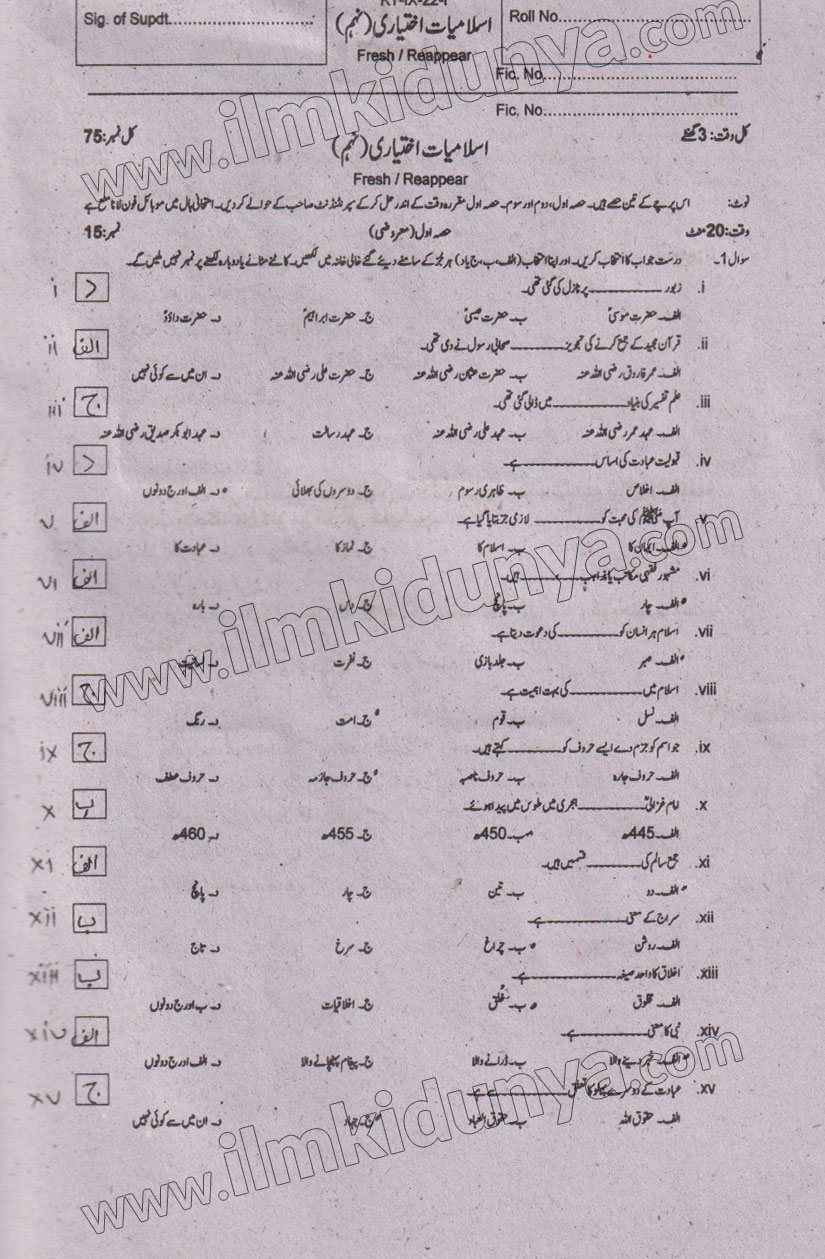 KT-IX-22-I
Sig. of Supdt.....................................
اسلامیات اختیاری (نہم)
Roll No.........................................
Fresh / Reappear
Fic. No.........................................
Fic. No.........................................
کل وقت: 3 گھنٹے
اسلامیات اختیاری (نہم)
کل نمبر: 75
Fresh / Reappear
نوٹ: اس پرچے کے تین حصے ہیں۔ حصہ اول، دوم اور سوم۔ حصہ اول مقررہ وقت کے اندر حل کر کے سپرنٹنڈنٹ صاحب کے حوالے کر دیں۔ امتحانی ہال میں موبائل فون لانا منع ہے
وقت: 20 منٹ حصہ اول (معروضی) نمبر: 15
سوال 1۔ درست جواب کا انتخاب کریں۔ اور اپنا انتخاب (الف، ب، ج یا د) ہر جُز کے سامنے دیئے گئے خالی خانہ میں لکھیں۔ کاٹنے مٹانے یا دوبارہ لکھنے پر نمبر نہیں ملیں گے۔
i. زبور ـــــــــــ پر نازل کی گئی تھی۔ د i
الف۔ حضرت موسیٰؑ ب۔ حضرت عیسیٰؑ ج۔ حضرت ابراہیمؑ د۔ حضرت داؤدؑ
ii. قرآن مجید کے جمع کرنے کی تجویز ـــــــــــ صحابی رسول نے دی تھی۔ الف ii
الف۔ عمر فاروق رضی اللہ عنہ ب۔ حضرت عثمان رضی اللہ عنہ ج۔ حضرت علی رضی اللہ عنہ د۔ ان میں سے کوئی نہیں
iii. علم تفسیر کی بنیاد ـــــــــــ میں ڈالی گئی تھی۔ ج iii
الف۔ عہد عمر رضی اللہ عنہ ب۔ عہد علی رضی اللہ عنہ ج۔ عہد رسالت د۔ عہد ابوبکر صدیق رضی اللہ عنہ
iv. قبولیت عبادت کی اساس ـــــــــــ ہے۔ د iv
الف۔ اخلاص ب۔ ظاہری رسوم ج۔ دوسروں کی بھلائی د۔ الف اور ج دونوں
v. آپ ﷺ کی محبت کو ـــــــــــ لازمی جز بتایا گیا ہے۔ الف v
الف۔ ایمان کا ب۔ اسلام کا ج۔ نماز کا د۔ عبادت کا
vi. مشہور فقہی مکاتب یا مذاہب ـــــــــــ ہیں۔ الف vi
الف۔ چار ب۔ پانچ ج۔ دس د۔ بارہ
vii. اسلام ہر انسان کو ـــــــــــ کی دعوت دیتا ہے۔ الف vii
الف۔ صبر ب۔ جلد بازی ج۔ نفرت د۔
viii. اسلام میں ـــــــــــ کی بہت اہمیت ہے۔ ج viii
الف۔ نسل ب۔ قوم ج۔ امت د۔ رنگ
ix. جو اسم کو جزم دے ایسے حروف کو ـــــــــــ کہتے ہیں۔ ج ix
الف۔ حروف جارہ ب۔ حروف ناصبہ ج۔ حروف جازمہ د۔ حروف عطف
x. امام غزالیؒ ـــــــــــ ہجری میں طوس میں پیدا ہوئے۔ ب x
الف۔ 445ھ ب۔ 450ھ ج۔ 455ھ د۔ 460ھ
xi. جمع سالم کی ـــــــــــ قسمیں ہیں۔ الف xi
الف۔ دو ب۔ تین ج۔ چار د۔ پانچ
xii. سراج کے معنی ـــــــــــ ہے۔ ب xii
الف۔ روشن ب۔ چراغ ج۔ سرخ د۔ تاج
xiii. اخلاق کا واحد صیغہ ـــــــــــ ہے۔ ب xiii
الف۔ مخلوق ب۔ خُلق ج۔ اخلاقیات د۔ ب اور ج دونوں
xiv. نبی کا معنی ـــــــــــ ہے۔ الف xiv
الف۔ خبر دینے والا ب۔ ڈرانے والا ج۔ پیغام پہنچانے والا د۔ الف اور ج دونوں
xv. عبادت کے دوسرے پہلو کا تعلق ـــــــــــ سے ہے۔ ج xv
الف۔ حقوق اللہ ب۔ حقوق العباد ج۔ جہاد د۔ ان میں سے کوئی نہیں
www.ilmkidunya.com
www.ilmkidunya.com
www.ilmkidunya.com